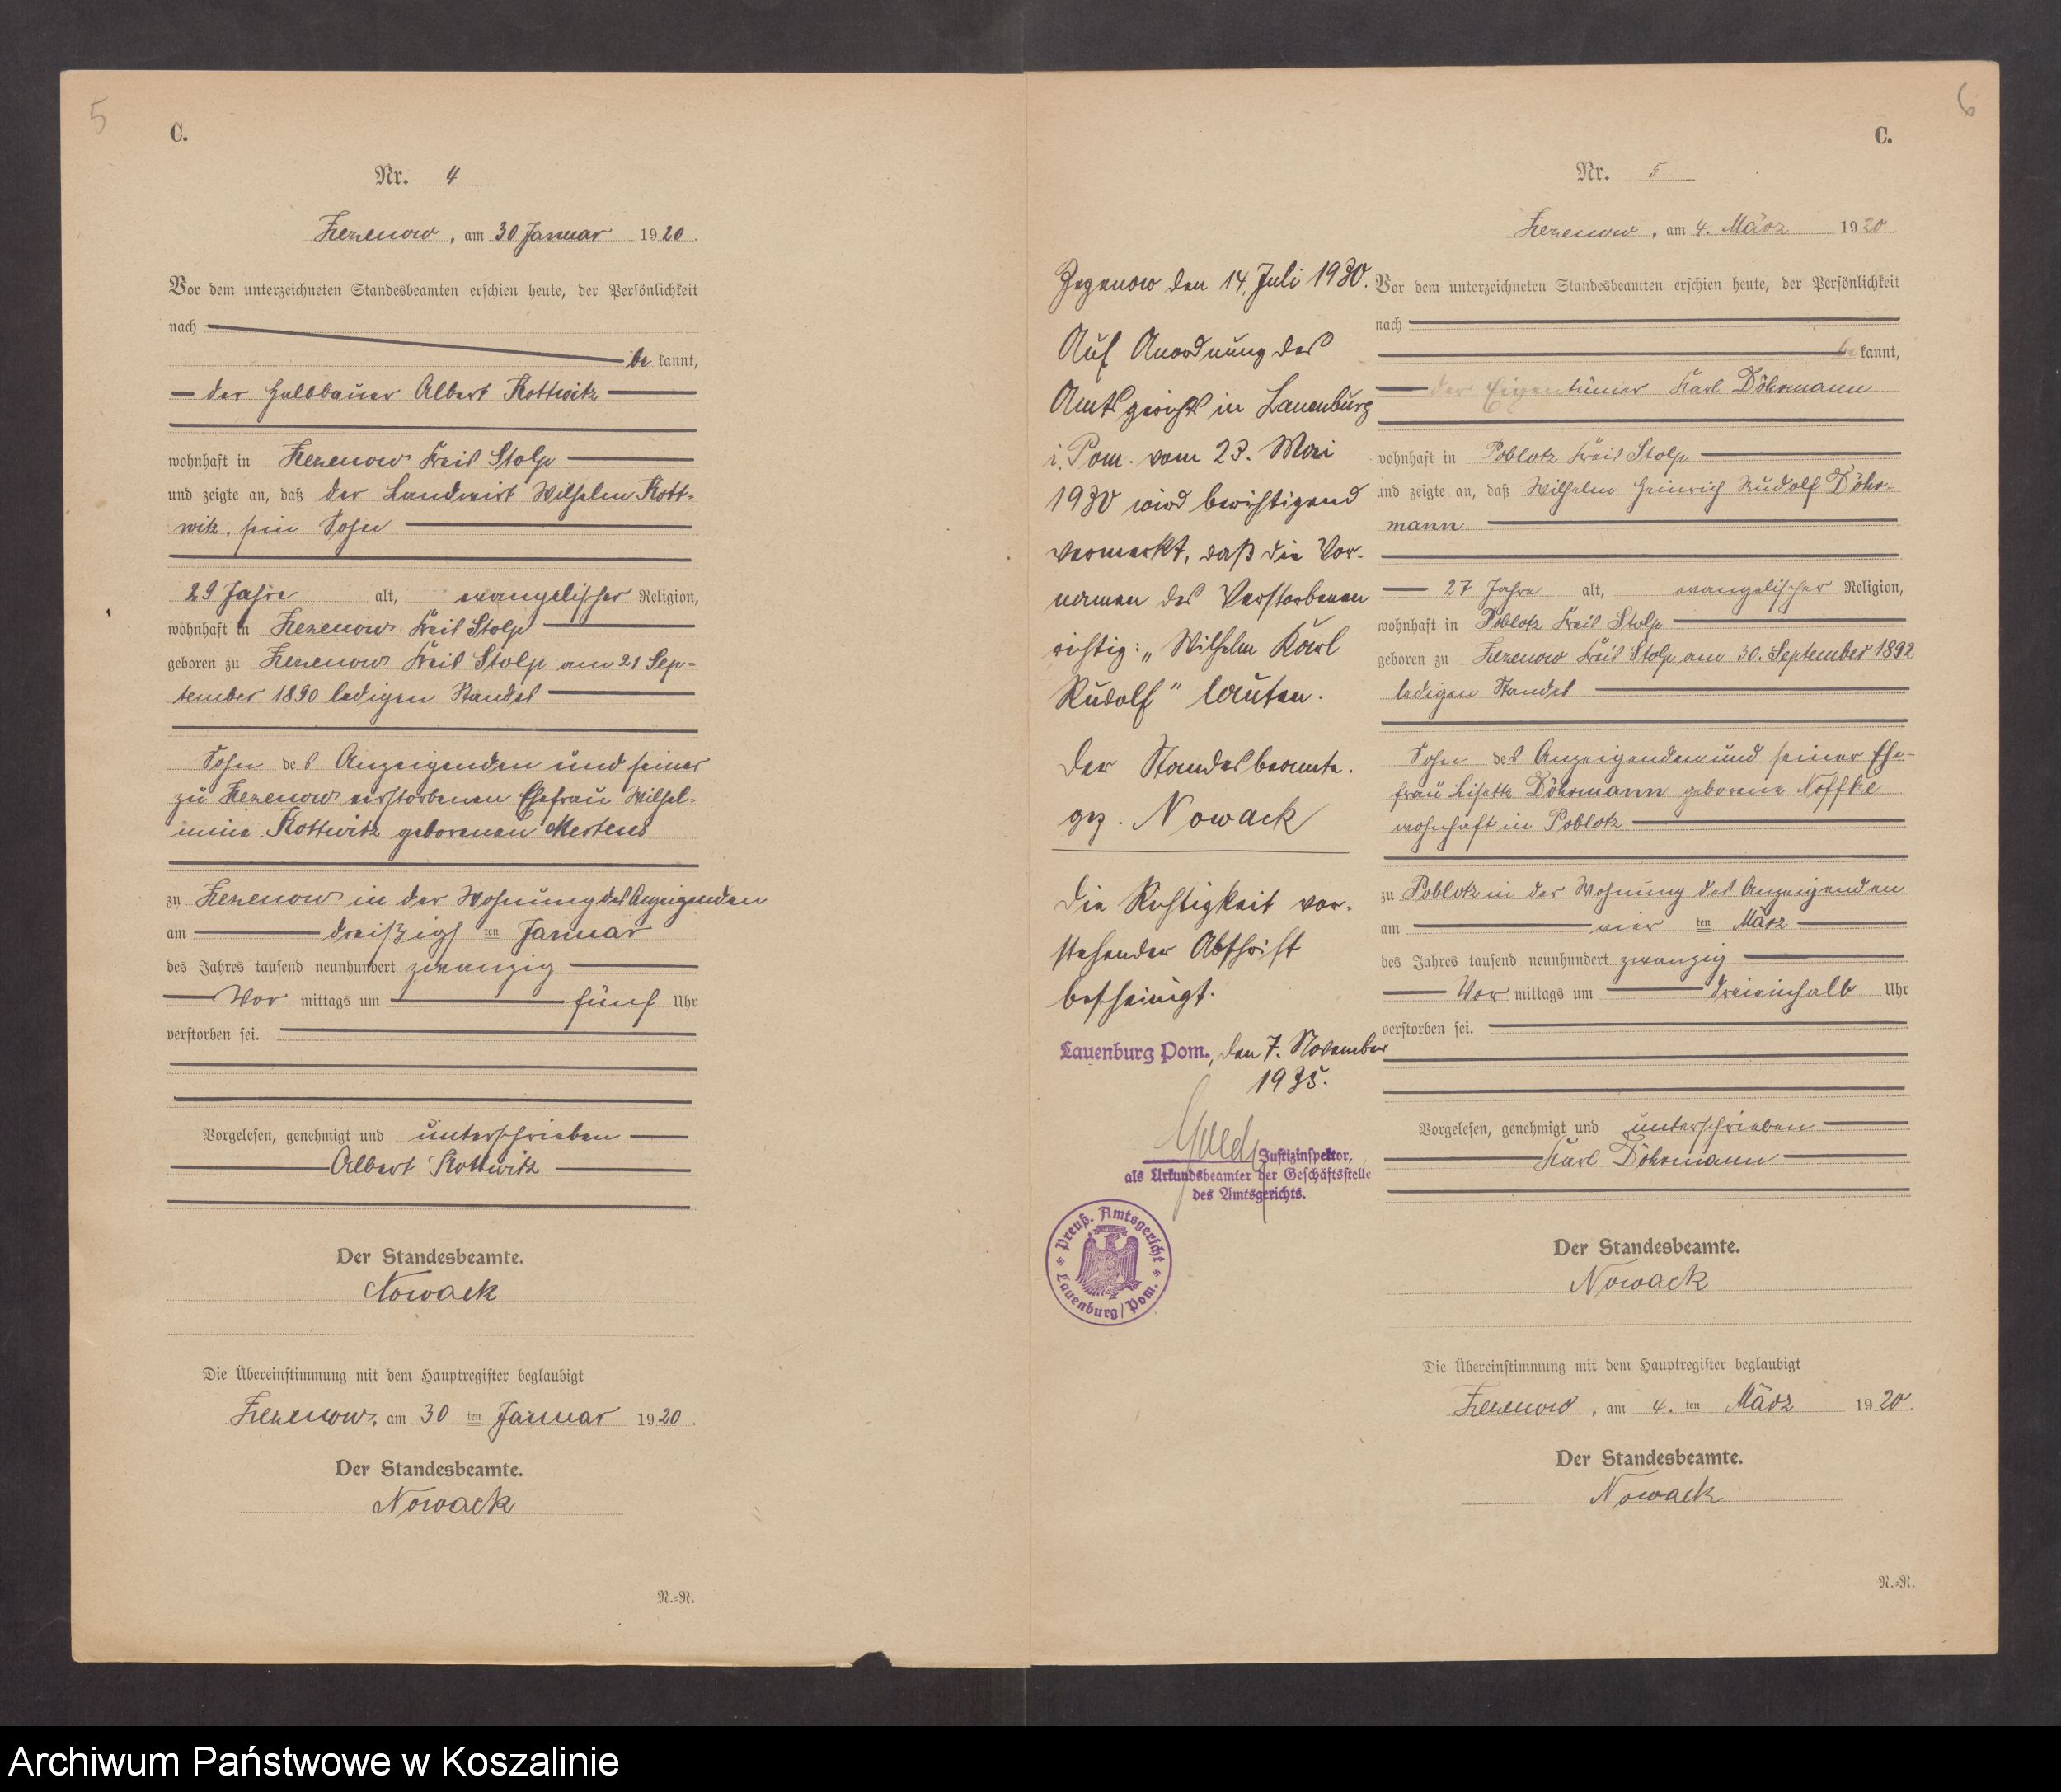 5
C.
Nr. 4
Zezenow, am 30 Januar 1920.
Vor dem unterzeichneten Standesbeamten erschien heute, der Persönlichkeit
nach
be kannt,
der Halbbauer Albert Kottwitz
wohnhaft in Zezenow Kreis Stolp
und zeigte an, daß der Landwirt Wilhelm Kott-
witz, sein Sohn
29 Jahre alt, evangelischer Religion,
wohnhaft in Zezenow Kreis Stolp
geboren zu Zezenow Kreis Stolp am 21 Sep-
tember 1890 ledigen Standes
Sohn des Anzeigenden und seiner
zu Zezenow verstorbenen Ehefrau Wilhel-
mine Kottwitz geborenen Mertens
zu Zezenow in der Wohnung des Anzeigenden
am dreißigs ten Januar
des Jahres tausend neunhundert zwanzig
Vor mittags um fünf Uhr
verstorben sei.
Vorgelesen, genehmigt und unterschrieben
Albert Kottwitz
Der Standesbeamte.
Nowack
Die Übereinstimmung mit dem Hauptregister beglaubigt
Zezenow, am 30 ten Januar 1920.
Der Standesbeamte.
Nowack
N.=N.
6
C.
Nr. 5
Zezenow, am 4. März 1920
Zezenow den 14. Juli 1930.
Auf Anordnung des
Amtsgerichts in Lauenburg
i. Pom. vom 23. Mai
1930 wird berichtigend
vermerkt, daß die Vor-
namen des Verstorbenen
richtig: „Wilhelm Karl
Rudolf" lauten.
Der Standesbeamte.
gez. Nowack
Die Richtigkeit vor-
stehender Abschrift
bescheinigt.
Lauenburg Pom., den 7. November
1935.
Justizinspektor,
als Urkundsbeamter der Geschäftsstelle
des Amtsgerichts.
Preuß. Amtsgericht
Lauenburg/Pom.
Vor dem unterzeichneten Standesbeamten erschien heute, der Persönlichkeit
nach
be kannt,
der Eigentümer Karl Döhrmann
wohnhaft in Poblotz Kreis Stolp
und zeigte an, daß Wilhelm Heinrich Rudolf Döhr-
mann
27 Jahre alt, evangelischer Religion,
wohnhaft in Poblotz Kreis Stolp
geboren zu Zezenow Kreis Stolp am 30. September 1892
ledigen Standes
Sohn des Anzeigenden und seiner Ehe-
frau Lisette Döhrmann geborene Noffke
wohnhaft in Poblotz
zu Poblotz in der Wohnung des Anzeigenden
am vier ten März
des Jahres tausend neunhundert zwanzig
Vor mittags um dreieinhalb Uhr
verstorben sei.
Vorgelesen, genehmigt und unterschrieben
Karl Döhrmann
Der Standesbeamte.
Nowack
Die Übereinstimmung mit dem Hauptregister beglaubigt
Zezenow, am 4. ten März 1920.
Der Standesbeamte.
Nowack
N.=N.
Archiwum Państwowe w Koszalinie